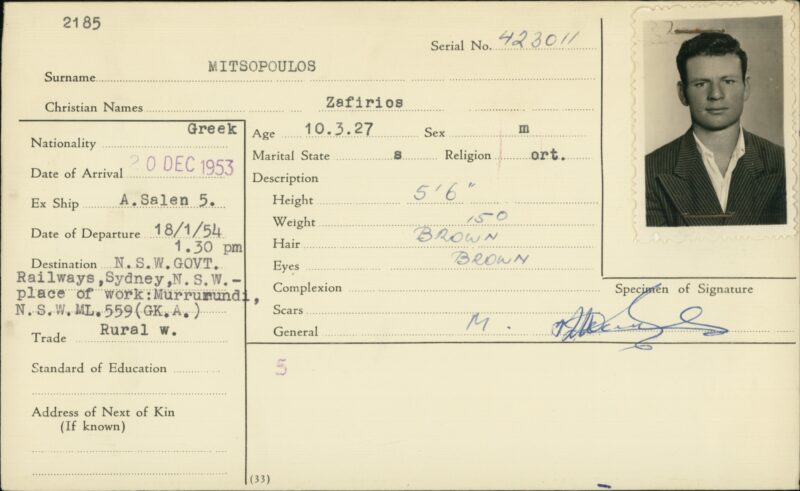 2185
Serial No. 423011
Surname MITSOPOULOS
Christian Names Zafirios
Nationality Greek
Date of Arrival 20 DEC 1953
Ex Ship A.Salen 5.
Date of Departure 18/1/54
1.30 pm
Destination N.S.W.GOVT.
Railways,Sydney,N.S.W.-
place of work:Murrurundi,
N.S.W.ML.559(GK.A.)
Trade Rural w.
Standard of Education
Address of Next of Kin
(If known)
Age 10.3.27 Sex m
Marital State s Religion ort.
Description
Height 5'6"
Weight 150
Hair BROWN
Eyes BROWN
Complexion
Scars
General M.
Specimen of Signature
5
(33)